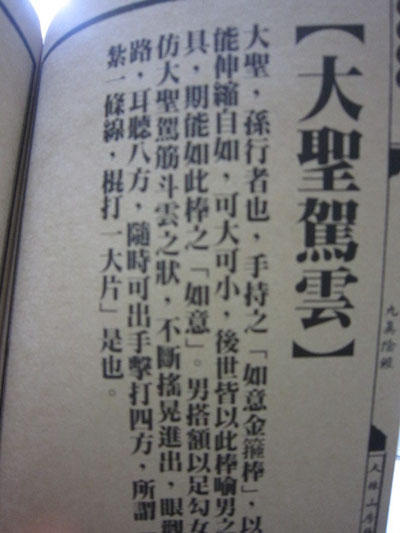 【大聖駕雲】
大聖，孫行者也，手持之「如意金箍棒」，以
能伸縮自如，可大可小，後世皆以此棒喻男之
具，期能如此棒之「如意」。男搭額以足勾女
仿大聖駕筋斗雲之狀，不斷搖晃進出，眼觀
路，耳聽八方，隨時可出手擊打四方，所謂「
紮一條線，棍打一大片」是也。